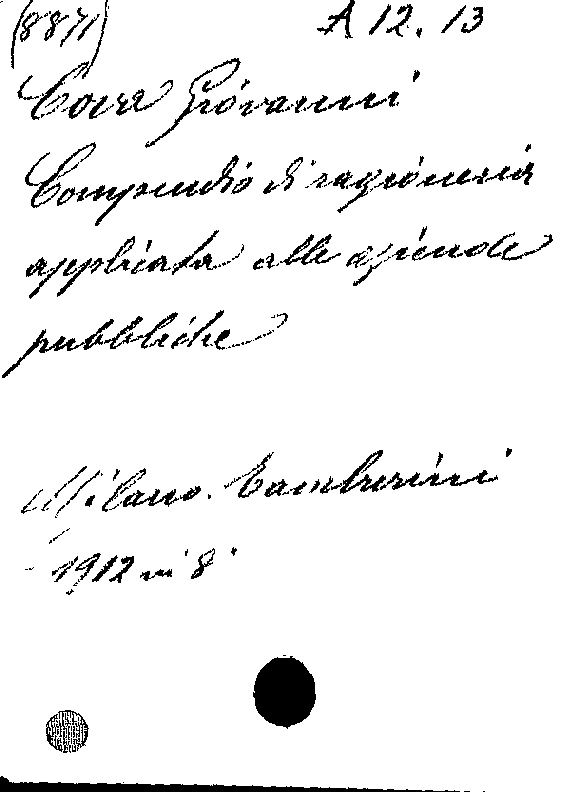 (8871)
A 12. 13
Cova Giovanni
Compendio di ragioneria
applicata alle aziende
pubbliche
Milano. Tamburini
1912 in 8°